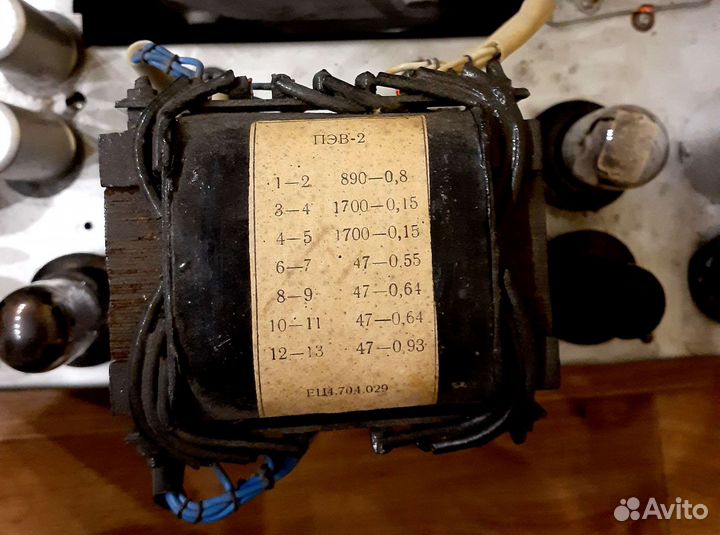 ПЭВ-2
1—2 890—0,8
3—4 1700—0,15
4—5 1700—0,15
6—7 47—0.55
8—9 47—0,64
10—11 47—0,64
12—13 47—0,93
ЕЦ4.704.029
Avito